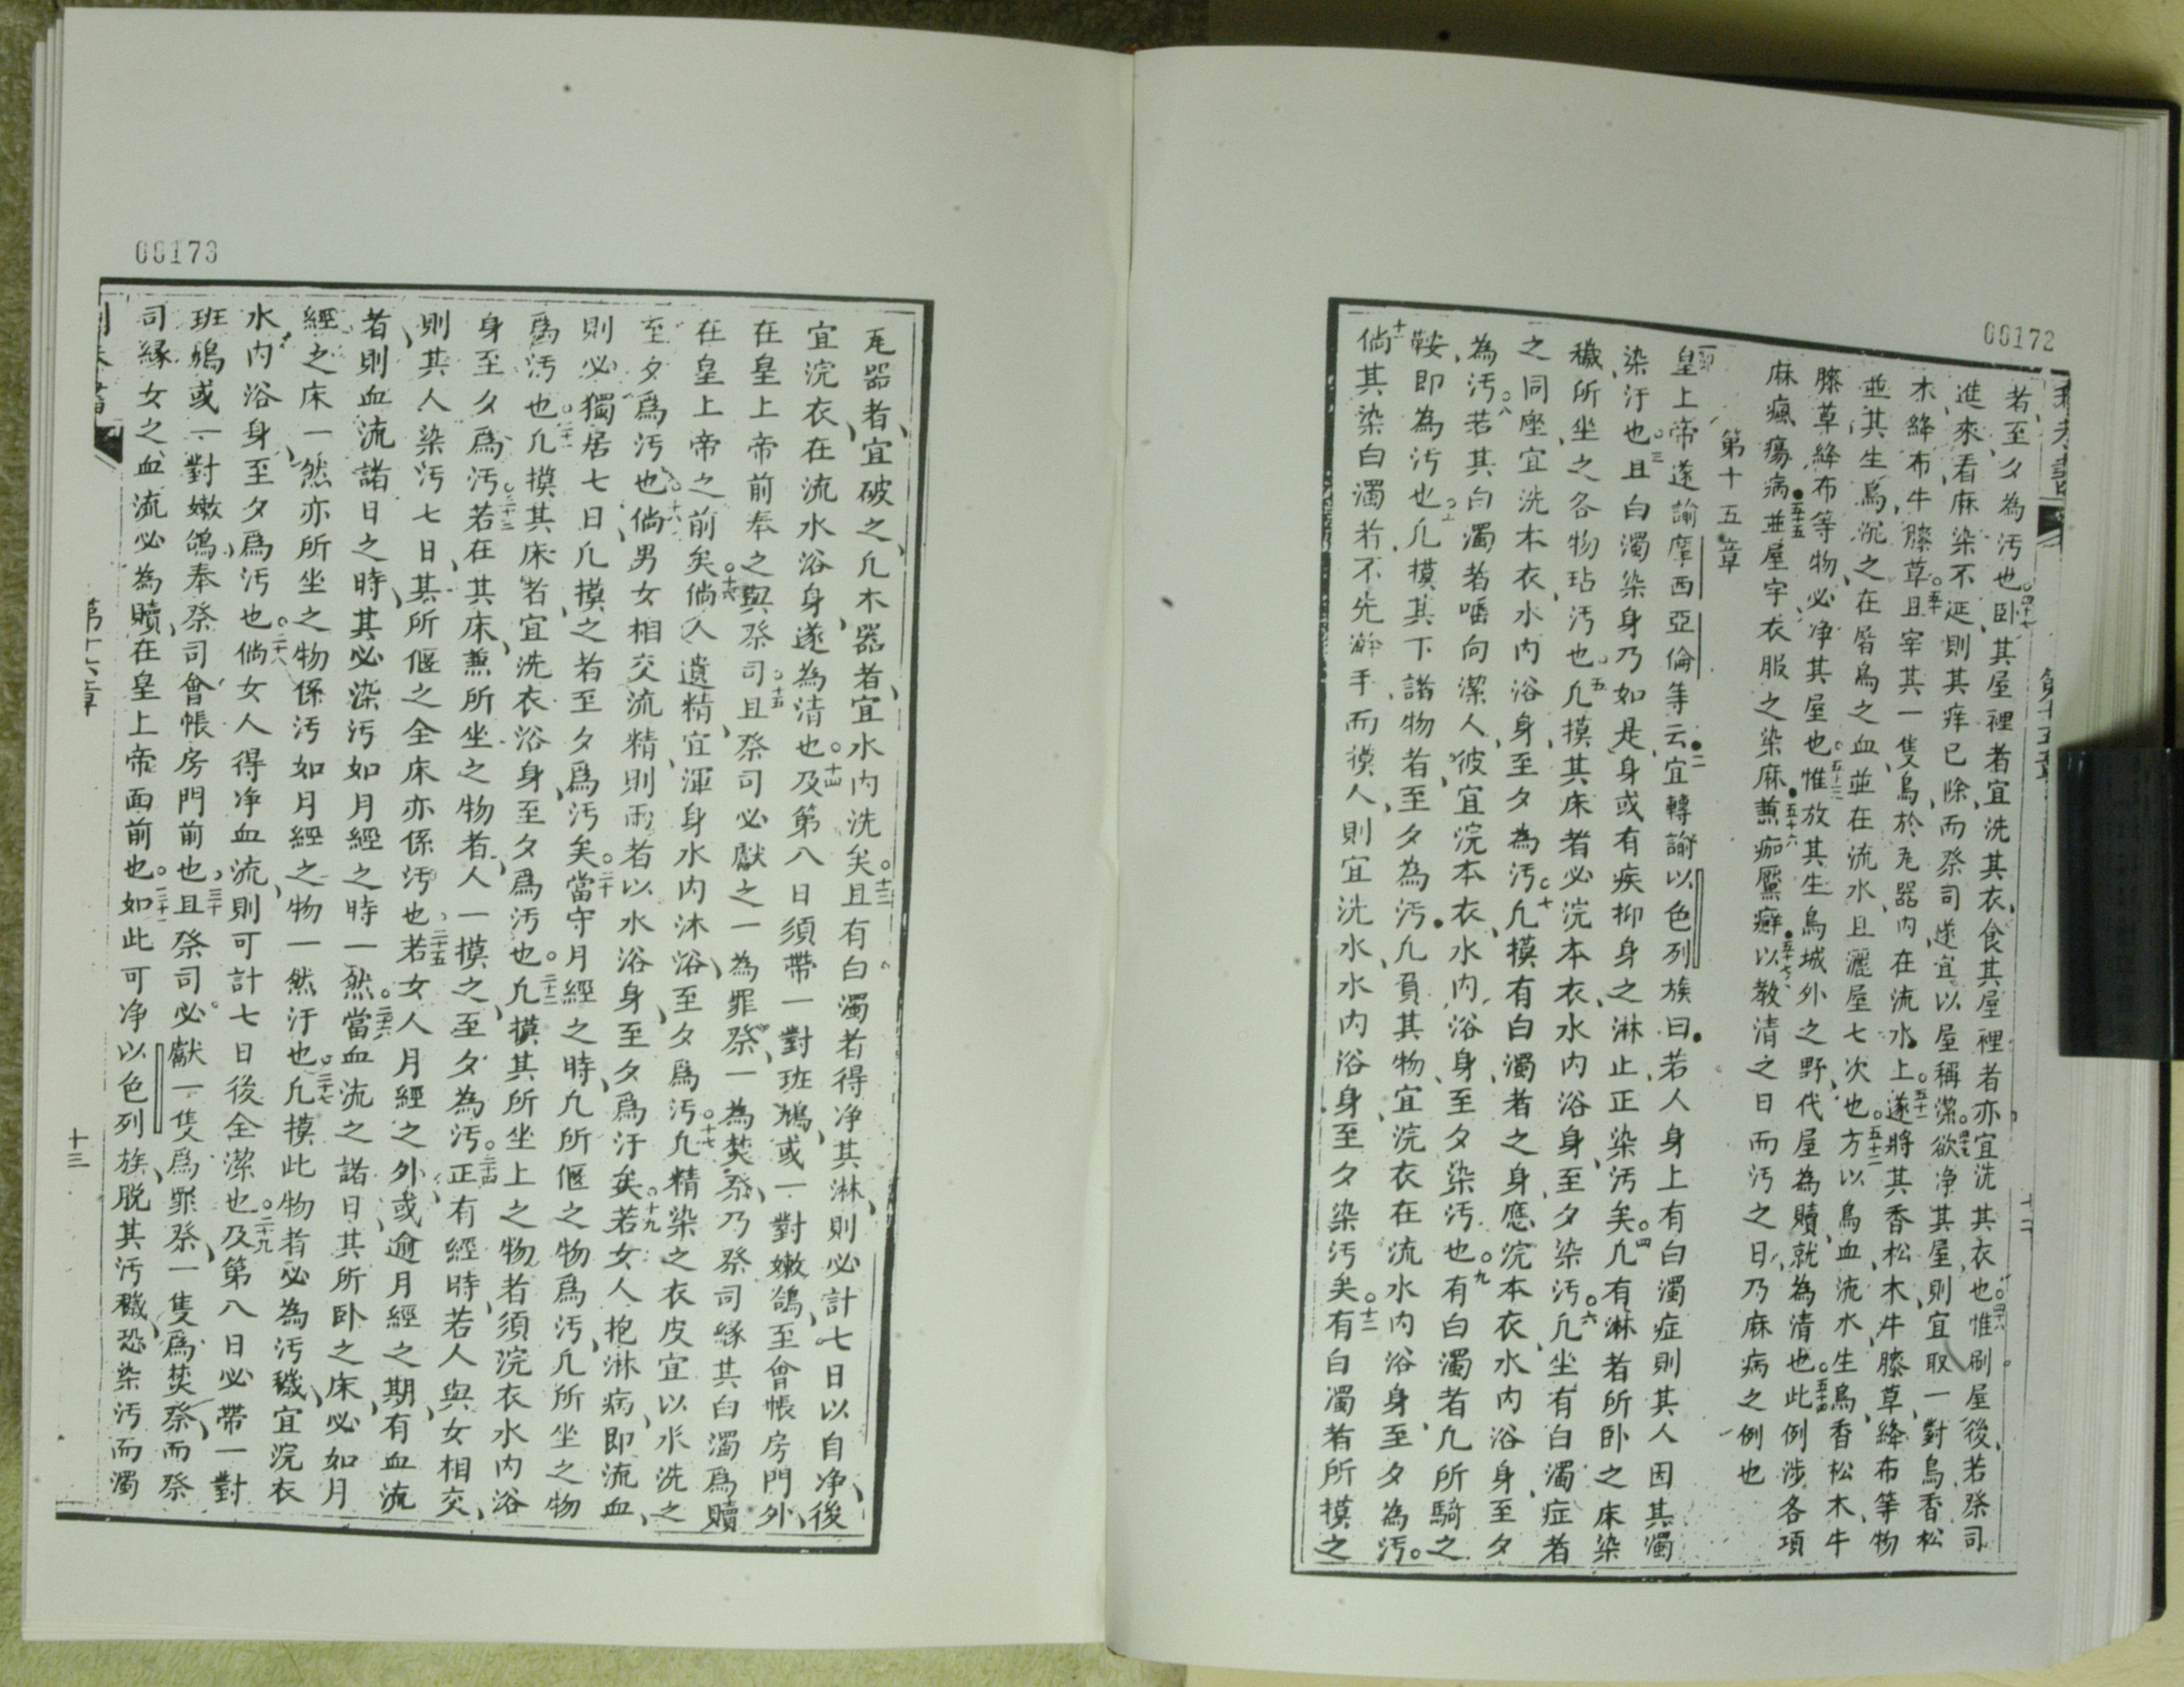 00172
者至夕為汚也四十七臥其屋裡者宜洗其衣食其屋裡者亦宜洗其衣也四十八惟刷屋後若祭司
進來看麻染不延則其痒已除而祭司遂宜以屋稱潔四十九欲净其屋則宜取一對鳥香松
木絳布牛膝草五十且宰其一隻鳥於瓦器內在流水上五十一遂將其香松木牛膝草絳布等物
並其生鳥沉之在屠鳥之血並在流水且灑屋七次也五十二方以鳥血流水生鳥香松木牛
膝草絳布等物必净其屋也五十三惟放其生鳥城外之野代屋為贖就為清也五十四此例涉各項
麻瘋瘍病五十五並屋宇衣服之染麻五十六兼痂黶癬五十七以教清之日而汚之日乃麻病之例也
第十五章
皇上帝遂諭摩西亞倫等云二宜轉諭以色列族曰若人身上有白濁症則其人因其濁
染汙也三且白濁染身乃如是身或有疾抑身之淋止正染汚矣四凢有淋者所卧之床染
穢所坐之各物玷汚也五凢摸其床者必浣本衣水内浴身至夕染汚六凢坐有白濁症者
之同座宜洗本衣水内浴身至夕為汚七凢摸有白濁者之身應浣本衣水内浴身至夕
為汚八若其白濁者嚏向潔人彼宜浣本衣水内浴身至夕染汚也九有白濁者凢所騎之
鞍即為汚也十凢摸其下諸物者至夕為汚凢負其物宜浣衣在流水内浴身至夕為汚
十一倘其染白濁者不先澣手而摸人則宜洗水水内浴身至夕染汚矣十二有白濁者所摸之
十二
00173
瓦器者宜破之凢木器者宜水内洗矣十三且有白濁者得净其淋則必計七日以自净後
宜浣衣在流水浴身遂為清也十四及第八日須帶一對班鳩或一對嫩鴿至會帳房門外
在皇上帝前奉之與祭司十五且祭司必獻之一為罪祭一為焚祭乃祭司緣其白濁爲贖
在皇上帝之前矣十六倘人遺精宜渾身水内沐浴至夕爲汚十七凢精染之衣皮宜以水洗之
至夕爲汚也十八倘男女相交流精則兩者以水浴身至夕爲汙矣十九若女人抱淋病即流血
則必獨居七日凢摸之者至夕爲汚矣二十當守月經之時凢所偃之物爲汚凢所坐之物
爲汚也二十一凢摸其床者宜洗衣浴身至夕爲汚也二十二凢摸其所坐上之物者須浣衣水内浴
身至夕爲汚二十三若在其床兼所坐之物者人一摸之至夕為汚二十四正有經時若人與女相交
則其人染汚七日其所偃之全床亦係汚也二十五若女人月經之外或逾月經之期有血流
者則血流諸日之時其必染汚如月經之時一然二十六當血流之諸日其所卧之床必如月
經之床一然亦所坐之物係汚如月經之物一然汙也二十七凢摸此物者必為汚穢宜浣衣
水内浴身至夕爲汚也二十八倘女人得净血流則可計七日後全潔也二十九及第八日必帶一對
班鳩或一對嫩鴿奉祭司會帳房門前也三十且祭司必獻一隻爲罪祭一隻爲焚祭而祭
司緣女之血流必為贖在皇上帝面前也三十一如此可净以色列族脫其汚穢恐染汚而濁
第十六章
十三